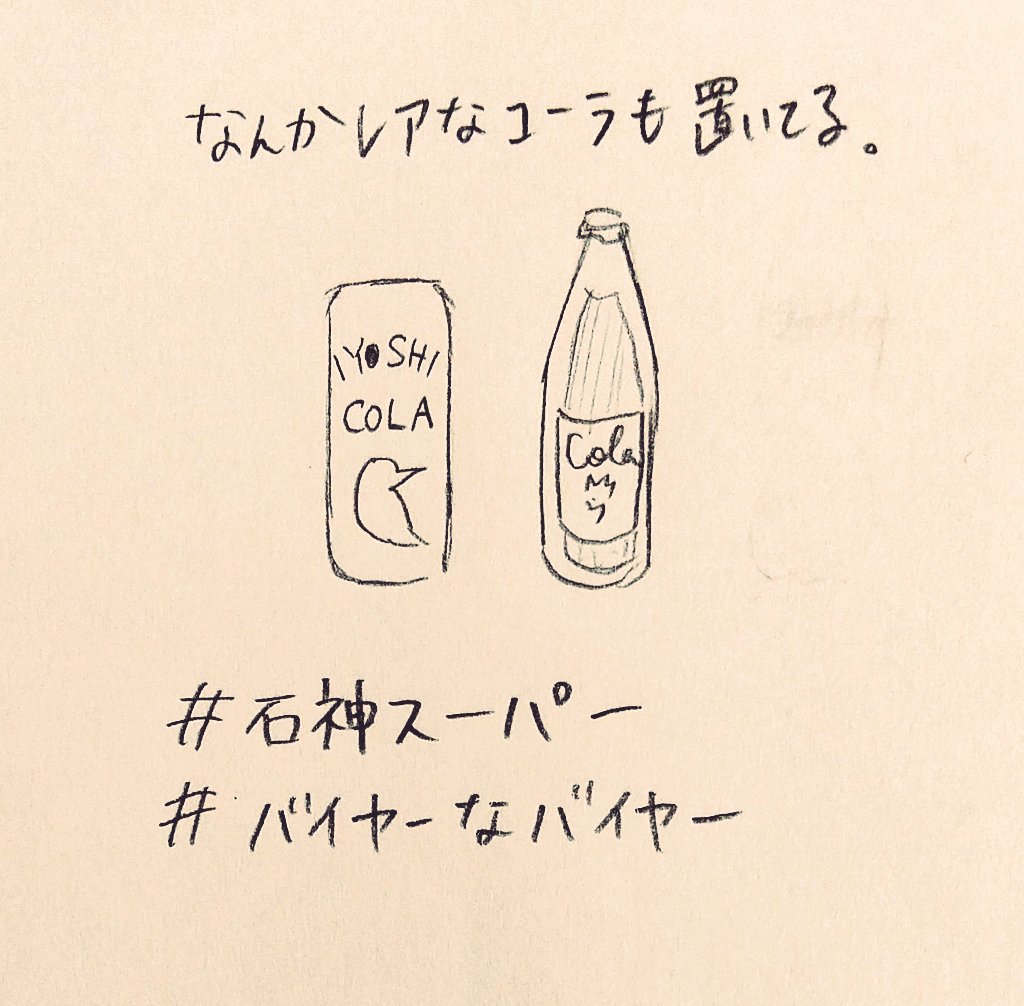 なんかレアなコーラも置いてる。
IYOSHI
COLA
Cola
#石神スーパー
#バイヤーなバイヤー